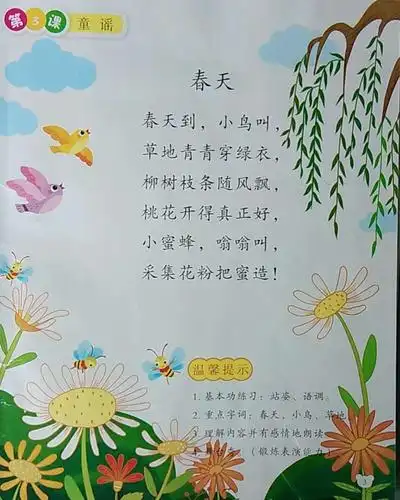 第3课 童谣
春天
春天到，小鸟叫，
草地青青穿绿衣，
柳树枝条随风飘，
桃花开得真正好，
小蜜蜂，嗡嗡叫，
采集花粉把蜜造！
温馨提示
1. 基本功练习：站姿、语调。
2. 重点字词：春天、小鸟、草地
3. 理解内容并有感情地朗读
4. （锻炼表演能力）